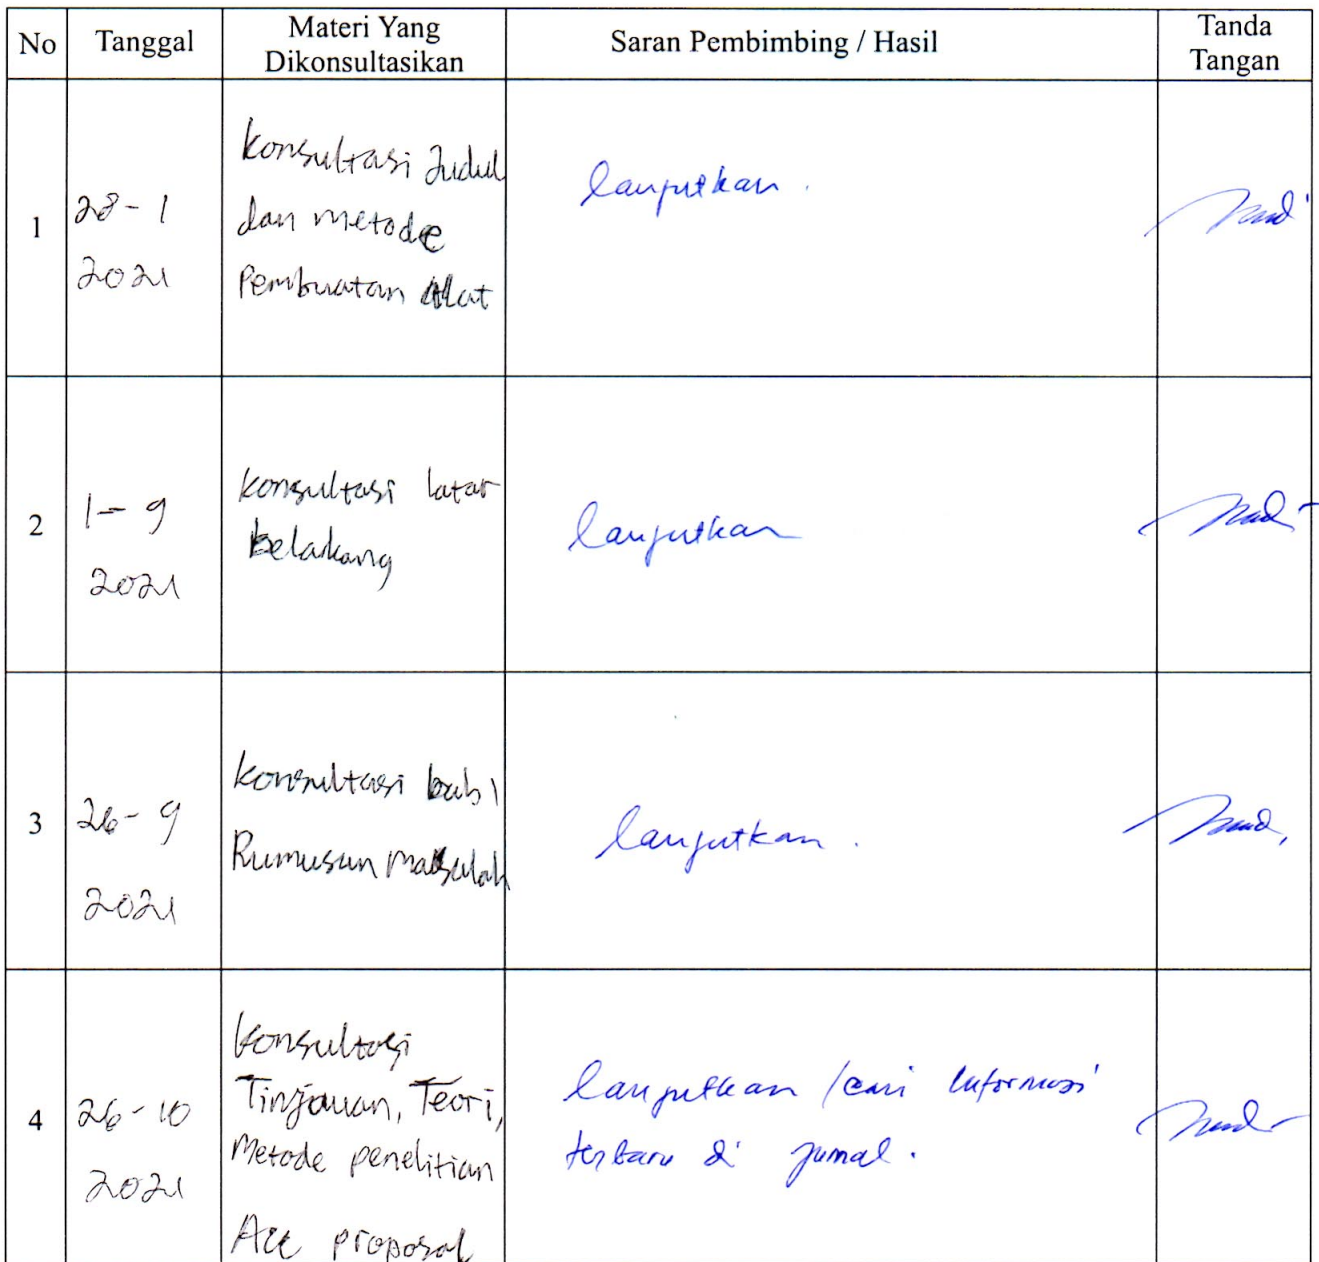 No Tanggal Materi Yang Dikonsultasikan Saran Pembimbing / Hasil Tanda Tangan
1
28-1
2021
Konsultasi Judul
dan metode
Pembuatan Alat
lanjutkan.
2
1-9
2021
Konsultasi latar
belakang
lanjutkan
3
26-9
2021
Konsultasi bab 1
Rumusan masalah
lanjutkan.
4
26-10
2021
Konsultasi
Tinjauan, Teori,
Metode penelitian
Acc proposal
lanjutkan / cari informasi
terbaru di jurnal.